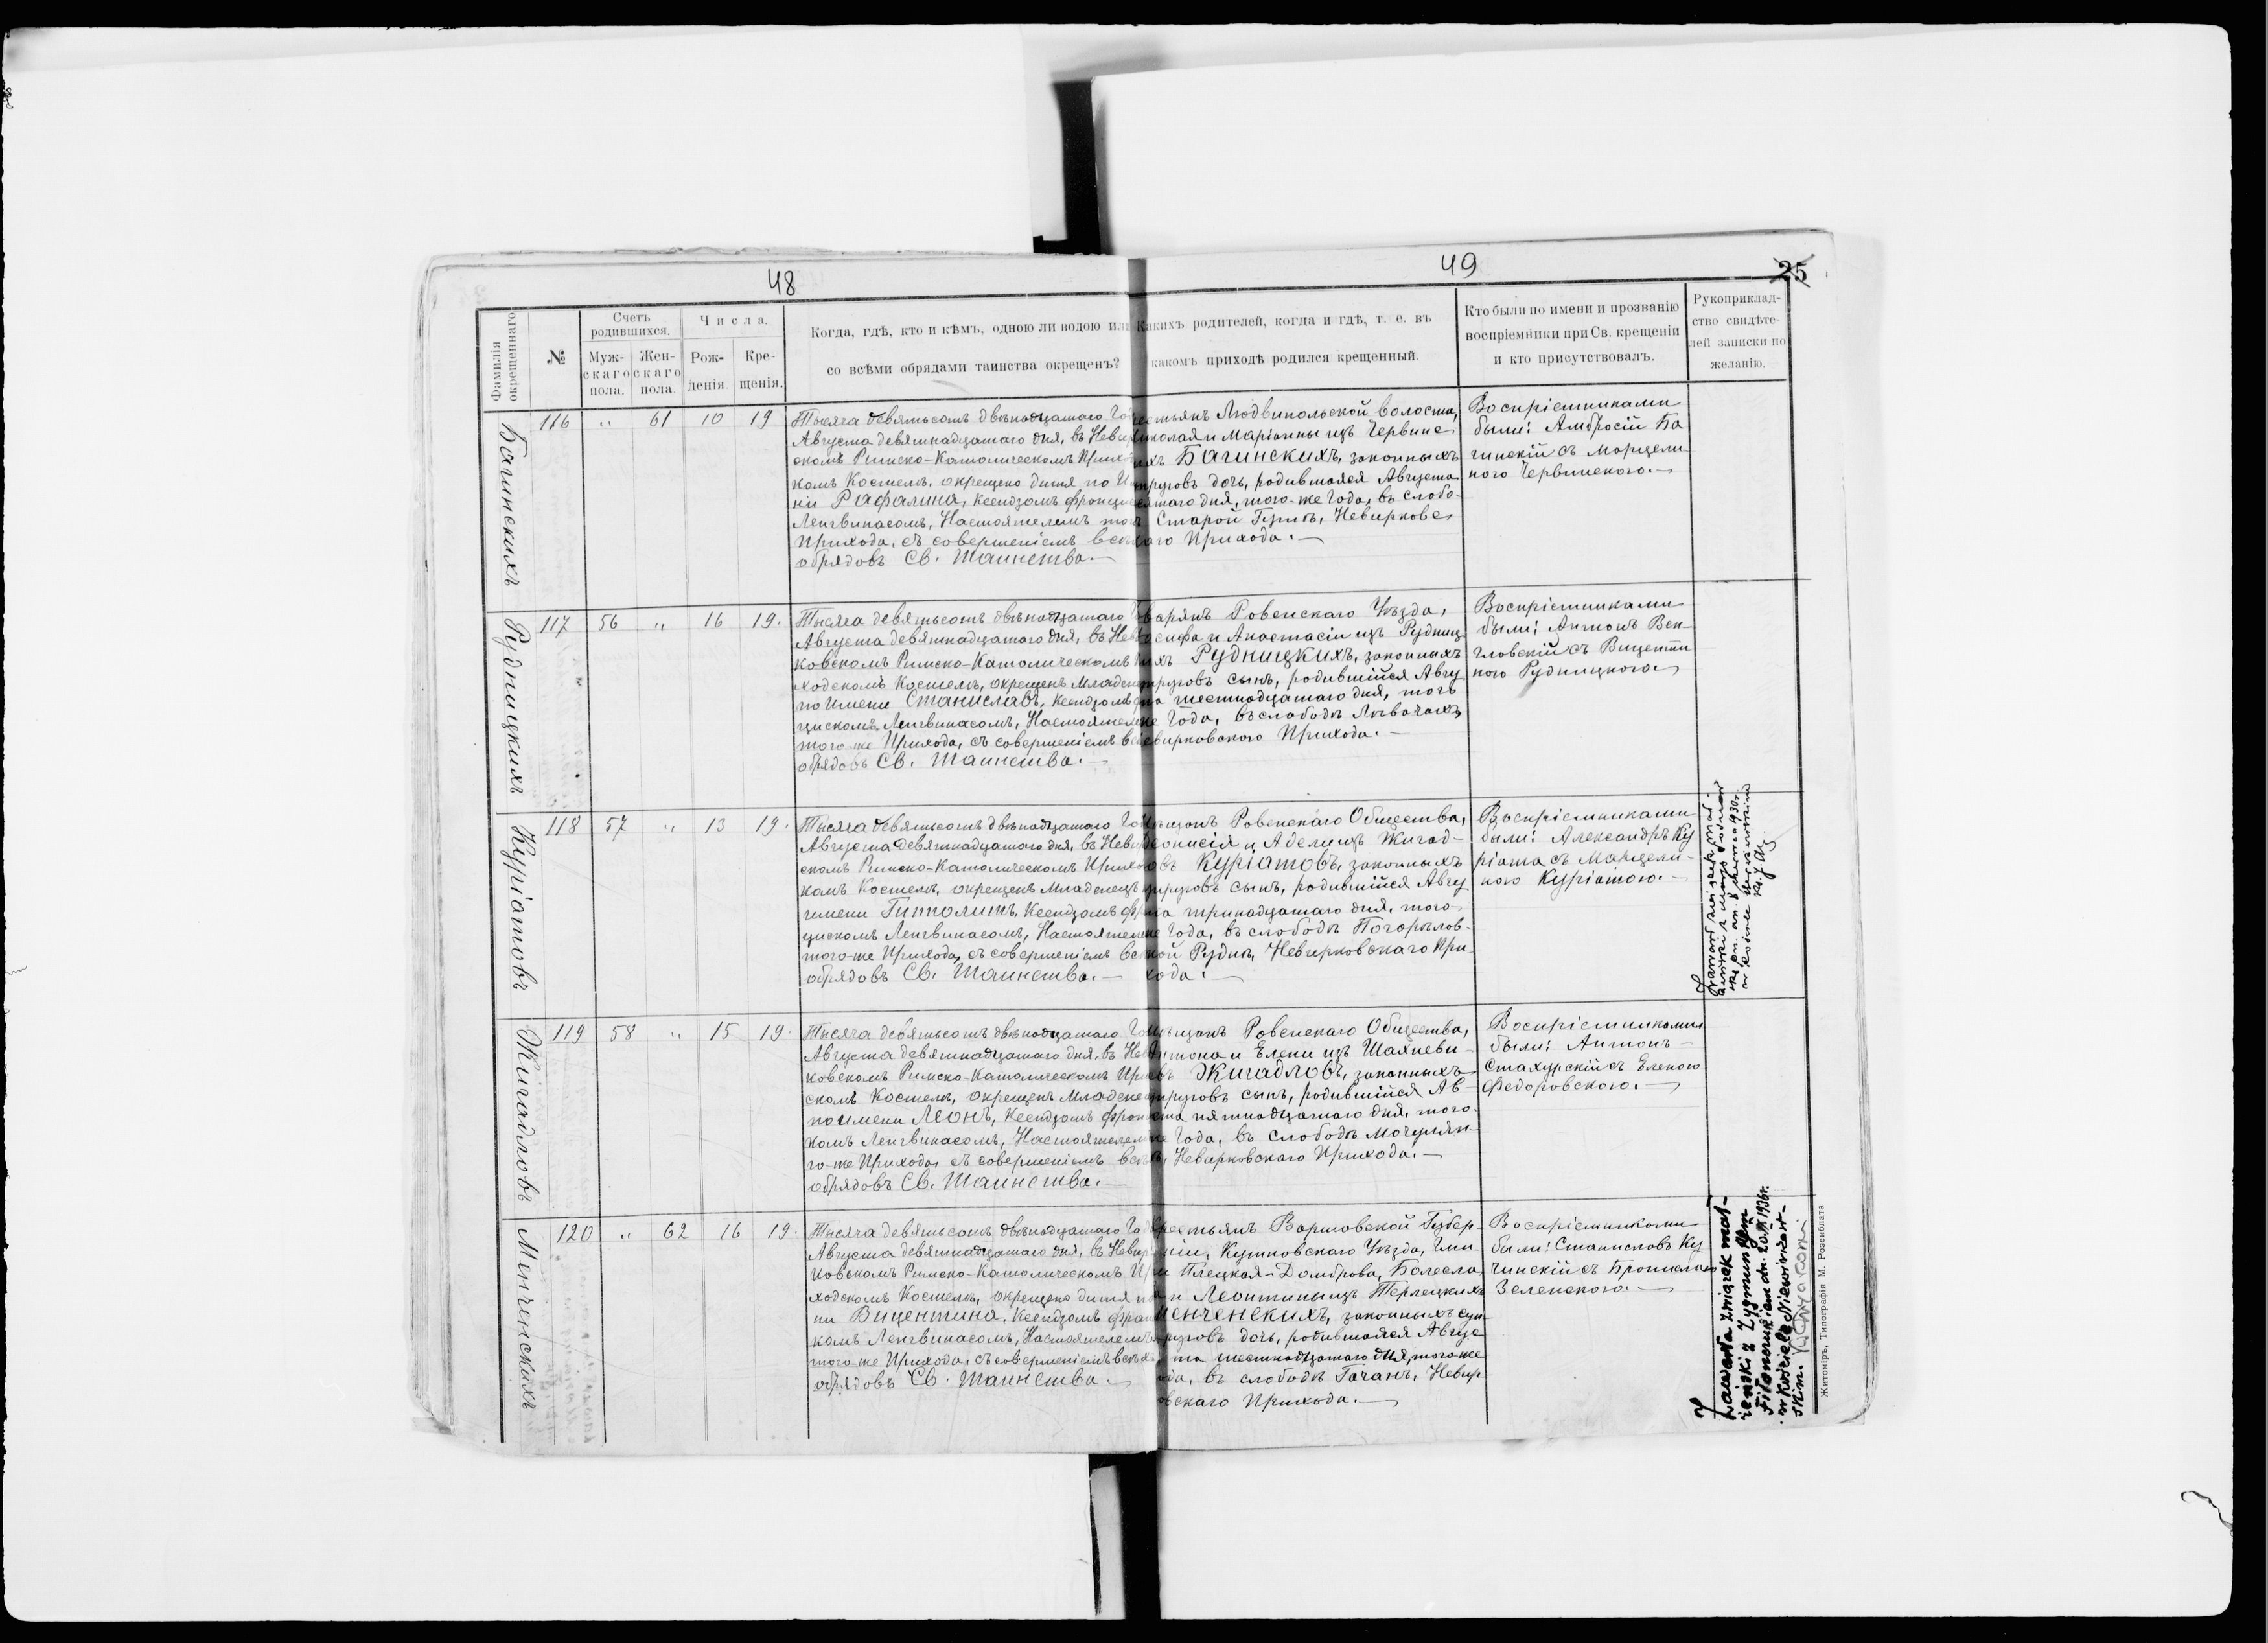 48
49
25
Фамилія окрещеннаго.
№
Счетъ родившихся.
Муж-
скаго
пола.
Жен-
скаго
пола.
Числа.
Рож-
денія.
Кре-
щенія.
Когда, гдѣ, кто и кѣмъ, одною ли водою или
со всѣми обрядами таинства окрещенъ?
Какихъ родителей, когда и гдѣ, т. е. въ
какомъ приходѣ родился крещенный.
Кто были по имени и прозванію
воспріемники при Св. крещеніи
и кто присутствовалъ.
Рукоприклад-
ство свидѣте-
лей записки по
желанію.
Багинскихъ
116 " 61 10 19
Тысяча девятьсотъ двѣнадцатаго Го
Августа девятнадцатаго дня, въ Невир
скомъ Римско-Католическомъ Прихо
комъ Костелѣ, окрещено дитя по И
ни Рафалина, Ксендзомъ Франциск
Лингвинасомъ, Настоятелемъ того
Прихода, съ совершеніемъ всѣхъ
обрядовъ Св. Таинства.—
естьянъ Людвипольской волости,
Николая и Маріанны изъ Червинс
ихъ Багинскихъ, законныхъ
пруговъ дочь, родившаяся Августа
сятаго дня, того-же Года, въ слобо-
Старой Гутѣ, Невирковс
каго Прихода.—
Воспріемниками
были: Амбросій Ба
гинскій съ Марцели
ною Червинского.—
Рудницкихъ
117 56 " 16 19.
Тысяча девятьсотъ двѣнадцатаго
Августа девятнадцатаго дня, въ Нев
ковскомъ Римско-Католическомъ
ходскомъ Костелѣ, окрещенъ Младене
по имени Станиславъ, Ксендзомъ Фр
цискомъ Лингвинасомъ, Настоятеле
того-же Прихода, съ совершеніемъ в
обрядовъ Св. Таинства.—
варянъ Ровенскаго Уѣзда,
осифа и Анастасіи изъ Рудниц
ихъ Рудницкихъ, законныхъ
пруговъ сынъ, родившійся Авгу
та шестнадцатаго дня, того
же Года, въ слободѣ Левачахъ,
Невирковского Прихода.—
Воспріемниками
были: Антонъ Вен-
гловскій съ Вицентi
ною Рудницкого.—
Куріатовъ
118 57 " 13 19.
Тысяча девятьсотъ двѣнадцатаго Го
Августа девятнадцатаго дня, въ Невир
скомъ Римско-Католическомъ Прихо
комъ Костелѣ, окрещенъ Младенецъ
имени Гипполитъ, Ксендзомъ Фр
цискомъ Лингвинасомъ, Настоятеле
того-же Прихода, съ совершеніемъ вс
обрядовъ Св. Таинства.—
ѣщанъ Ровенскаго Общества,
Діонисія и Адели изъ Жигад-
овъ Куріатовъ, законныхъ
пруговъ сынъ, родившійся Авгу
та тринадцатаго дня, того
же Года, въ слободѣ Погорѣлов-
кой Руднѣ, Невирковскаго При
хода.—
Воспріемниками
были: Александръ Ку
ріата съ Марцели-
ною Куріатою.—
Жигадловъ
119 58 " 15 19.
Тысяча девятьсотъ двѣнадцатаго Го
Августа девятнадцатаго дня, въ Нев
ковскомъ Римско-Католическомъ При
скомъ Костелѣ, окрещенъ Младене
по имени Леонъ, Ксендзомъ Франц
комъ Лингвинасомъ, Настоятелем
го-же Прихода, съ совершеніемъ всѣ
обрядовъ Св. Таинства.—
ѣщанъ Ровенскаго Общества,
Антона и Елены изъ Шахневи-
евъ Жигадловъ, законныхъ
пруговъ сынъ, родившійся Ав-
ста пятнадцатаго дня, того-
же Года, въ слободѣ Мочулян-
Невирковскаго Прихода.—
Воспріемниками
были: Антонъ
Стахурскій съ Еленою
Федоровского.—
Менченскихъ
120 " 62 16 19.
Тысяча девятьсотъ двѣнадцатаго Го
Августа девятнадцатаго дня, въ Невир
ковскомъ Римско-Католическомъ П
ходскомъ Костелѣ, окрещено дитя по
ни Вицентина, Ксендзомъ Фран
комъ Лингвинасомъ, Настоятелемъ
того-же Прихода, съ совершеніемъ всѣхъ
обрядовъ Св. Таинства.—
рестьянъ Варшовской Губер-
ніи, Кутновскаго Уѣзда, Гми-
ны Плецкая-Домброва, Болесла
и Леонтины изъ Терлецкихъ
Менченскихъ, законныхъ суп-
руговъ дочь, родившаяся Авгус
та шестнадцатаго дня, того-же
ода, въ слободѣ Гачанъ, Невир
овскаго Прихода.—
Воспріемниками
были: Станиславъ Ку
чинскій съ Брониславо
Зеленского.—
Zawarła związek mał-
żeński z Zygmuntem
Filonczukiem dn. 1936 r.
w kościele Niewirkow-
skim.
Житоміръ, Типографія М. Розенблата